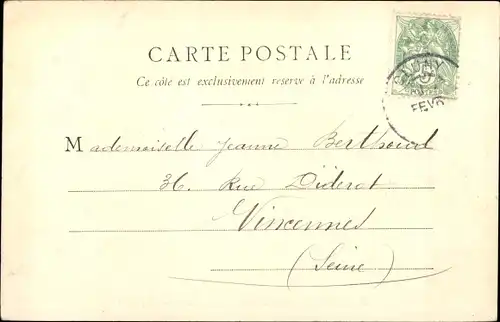 CARTE POSTALE
Ce côté est exclusivement réservé à l'adresse
Mademoiselle Jeanne Berthoud
36, Rue Diderot
Vincennes
(Seine)
5
FEVR